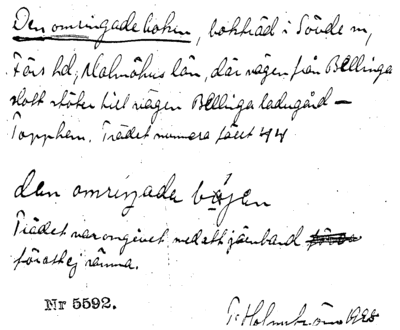 Den omringade boken, bokträd i Sövde sn,
Färs hd, Malmöhus län, där vägen från Bellinga
slott stöter till vägen Bellinga ladugård –
Topphem. Trädet numera fällt
den omringada
Trädet var omgivet med ett järnband
för att ej rämna.
Nr 5592.
T. Holmström 1925